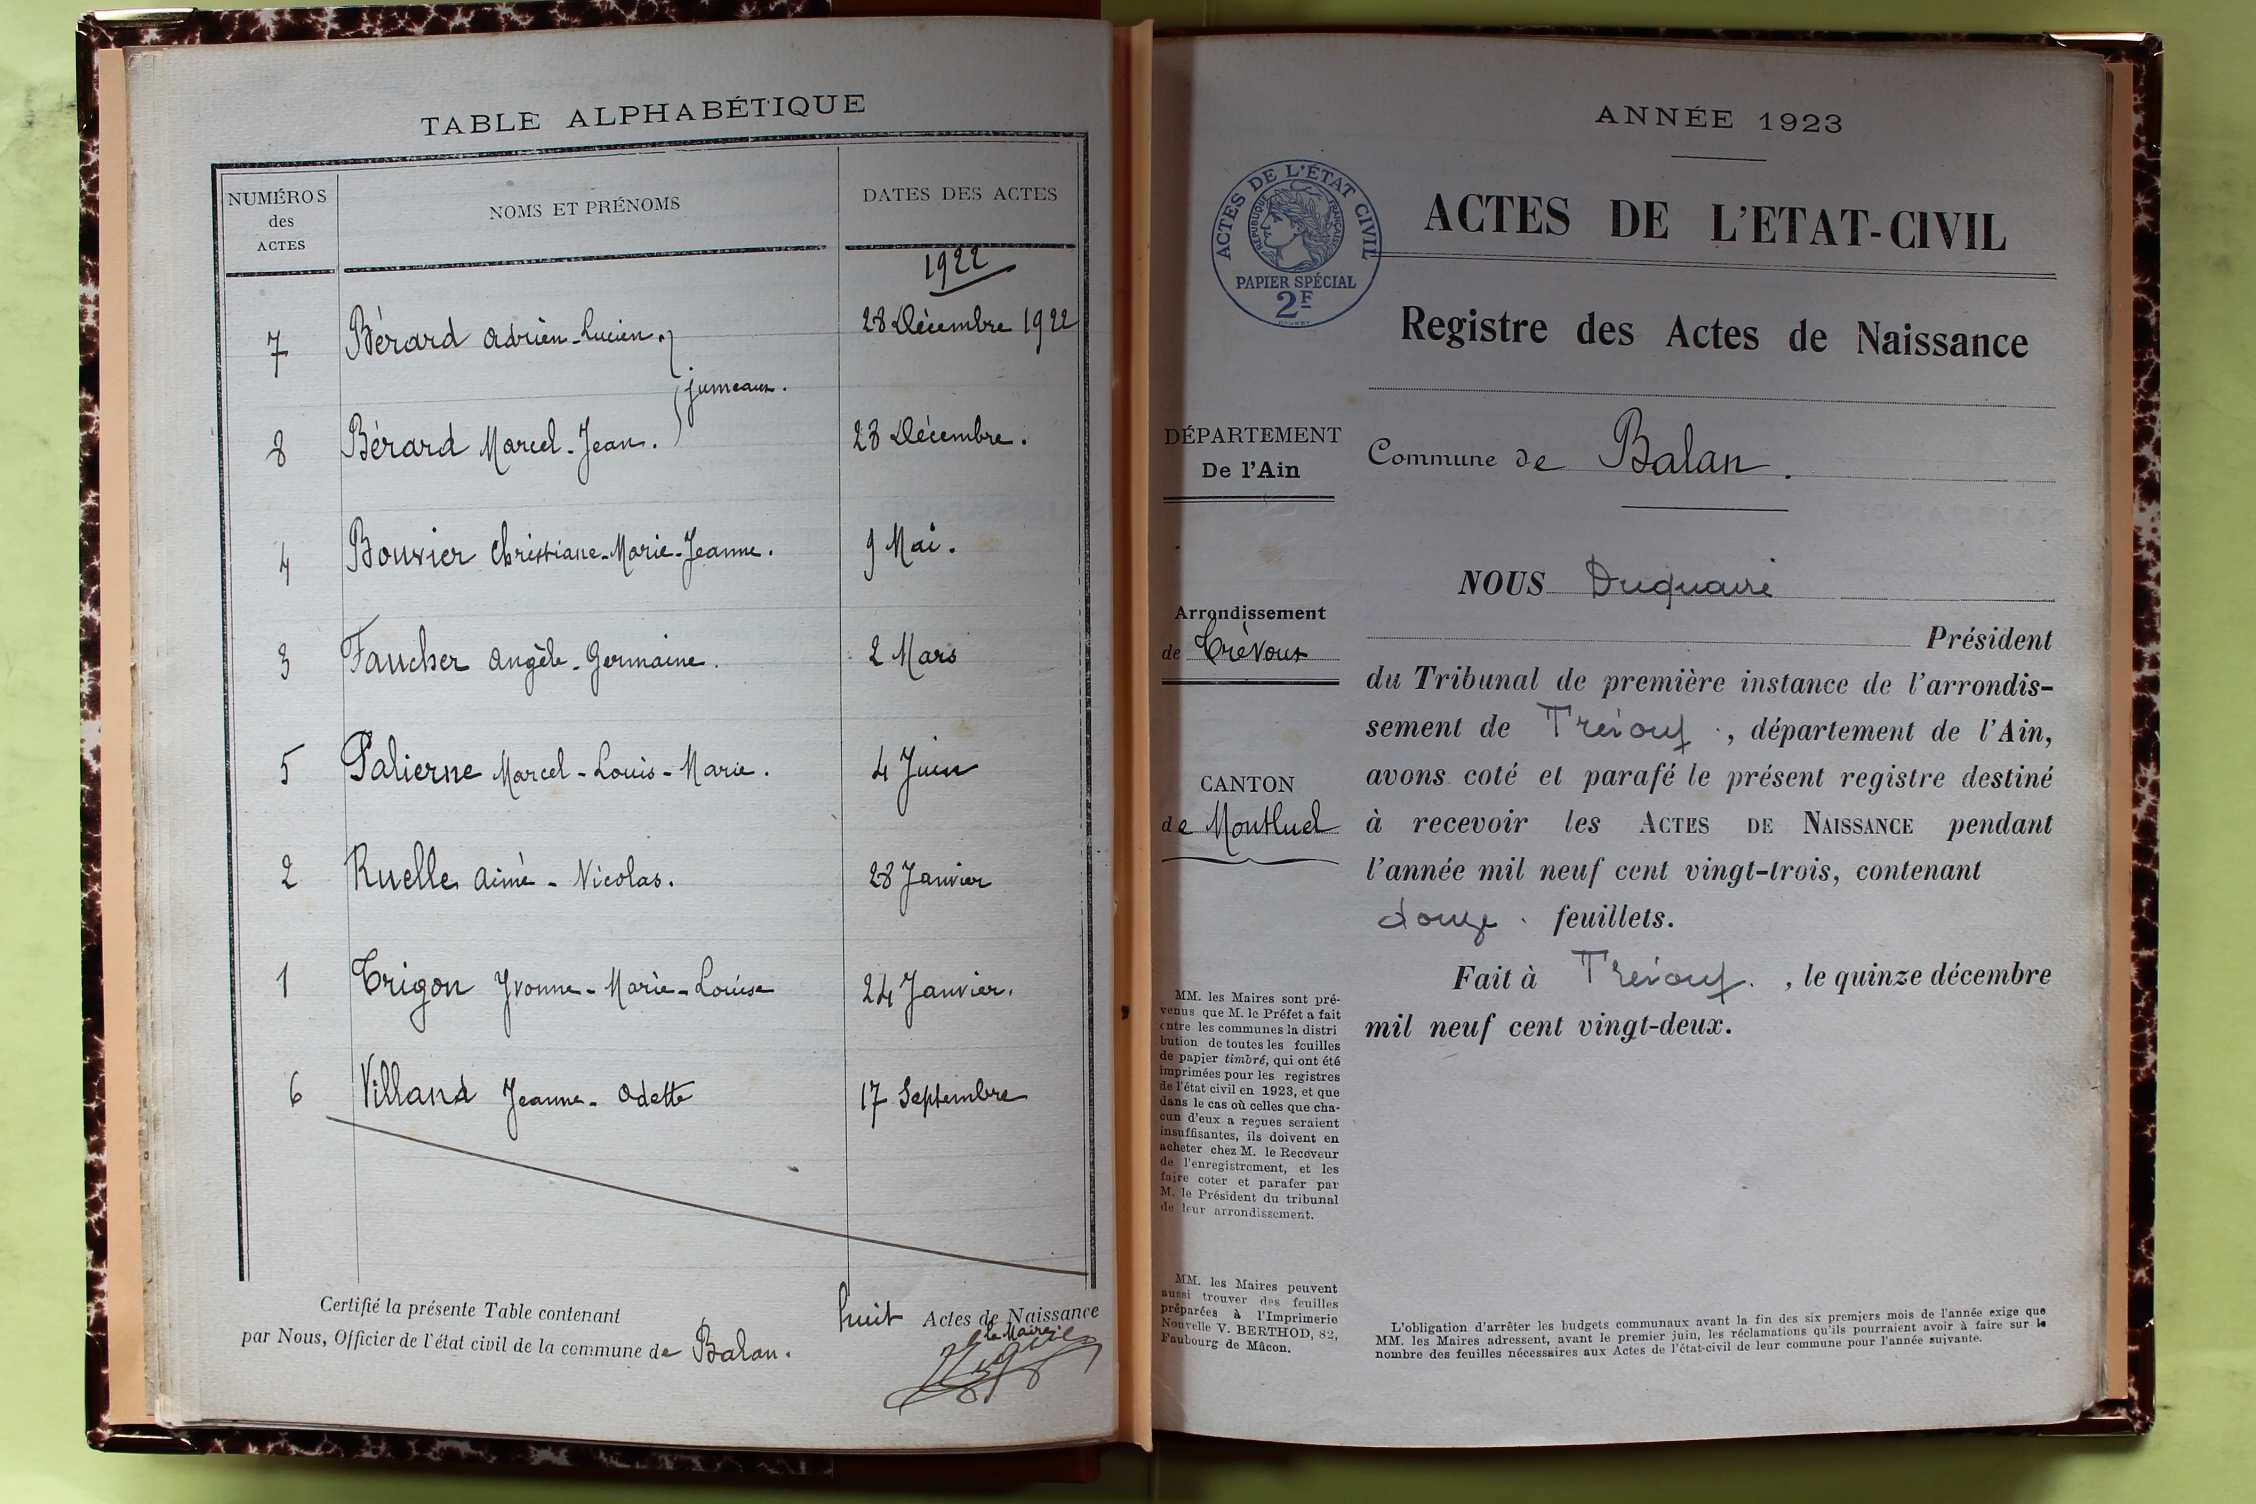 TABLE ALPHABÉTIQUE
NUMÉROS
des
ACTES
NOMS ET PRÉNOMS
DATES DES ACTES
1922
7 Bérard Adrien-Lucien. 28 Décembre 1922
jumeaux.
8 Bérard Marcel-Jean. 28 Décembre.
4 Bouvier Christiane-Marie-Jeanne. 9 Mai.
3 Faucher Angèle-Germaine. 2 Mars
5 Palierne Marcel-Louis-Marie. 4 Juin
2 Ruelle Aimé-Nicolas. 28 Janvier
1 Trigon Yvonne-Marie-Louise 24 Janvier.
6 Villand Jeanne-Odette 17 Septembre
Certifié la présente Table contenant huit Actes de Naissance
par Nous, Officier de l'état civil de la commune de Balan.
le Maire
ANNÉE 1923
ACTES DE L'ETAT-CIVIL
ACTES DE L'ÉTAT CIVIL
RÉPUBLIQUE FRANÇAISE
PAPIER SPÉCIAL
2F
Registre des Actes de Naissance
DÉPARTEMENT
De l'Ain
Commune de Balan.
Arrondissement
de Trévoux
CANTON
de Montluel
NOUS Duquaire
Président
du Tribunal de première instance de l'arrondis-
sement de Trévoux, département de l'Ain,
avons coté et parafé le présent registre destiné
à recevoir les ACTES DE NAISSANCE pendant
l'année mil neuf cent vingt-trois, contenant
douze feuillets.
Fait à Trévoux, le quinze décembre
mil neuf cent vingt-deux.
MM. les Maires sont pré-
venus que M. le Préfet a fait
entre les communes la distri
bution de toutes les feuilles
de papier timbré, qui ont été
imprimées pour les registres
de l'état civil en 1923, et que
dans le cas où celles que cha-
cun d'eux a reçues seraient
insuffisantes, ils doivent en
acheter chez M. le Receveur
de l'enregistrement, et les
faire coter et parafer par
M. le Président du tribunal
de leur arrondissement.
MM. les Maires peuvent
aussi trouver des feuilles
préparées à l'Imprimerie
Nouvelle V. BERTHOD, 82,
Faubourg de Mâcon.
L'obligation d'arrêter les budgets communaux avant la fin des six premiers mois de l'année exige que
MM. les Maires adressent, avant le premier juin, les réclamations qu'ils pourraient avoir à faire sur le
nombre des feuilles nécessaires aux Actes de l'état-civil de leur commune pour l'année suivante.